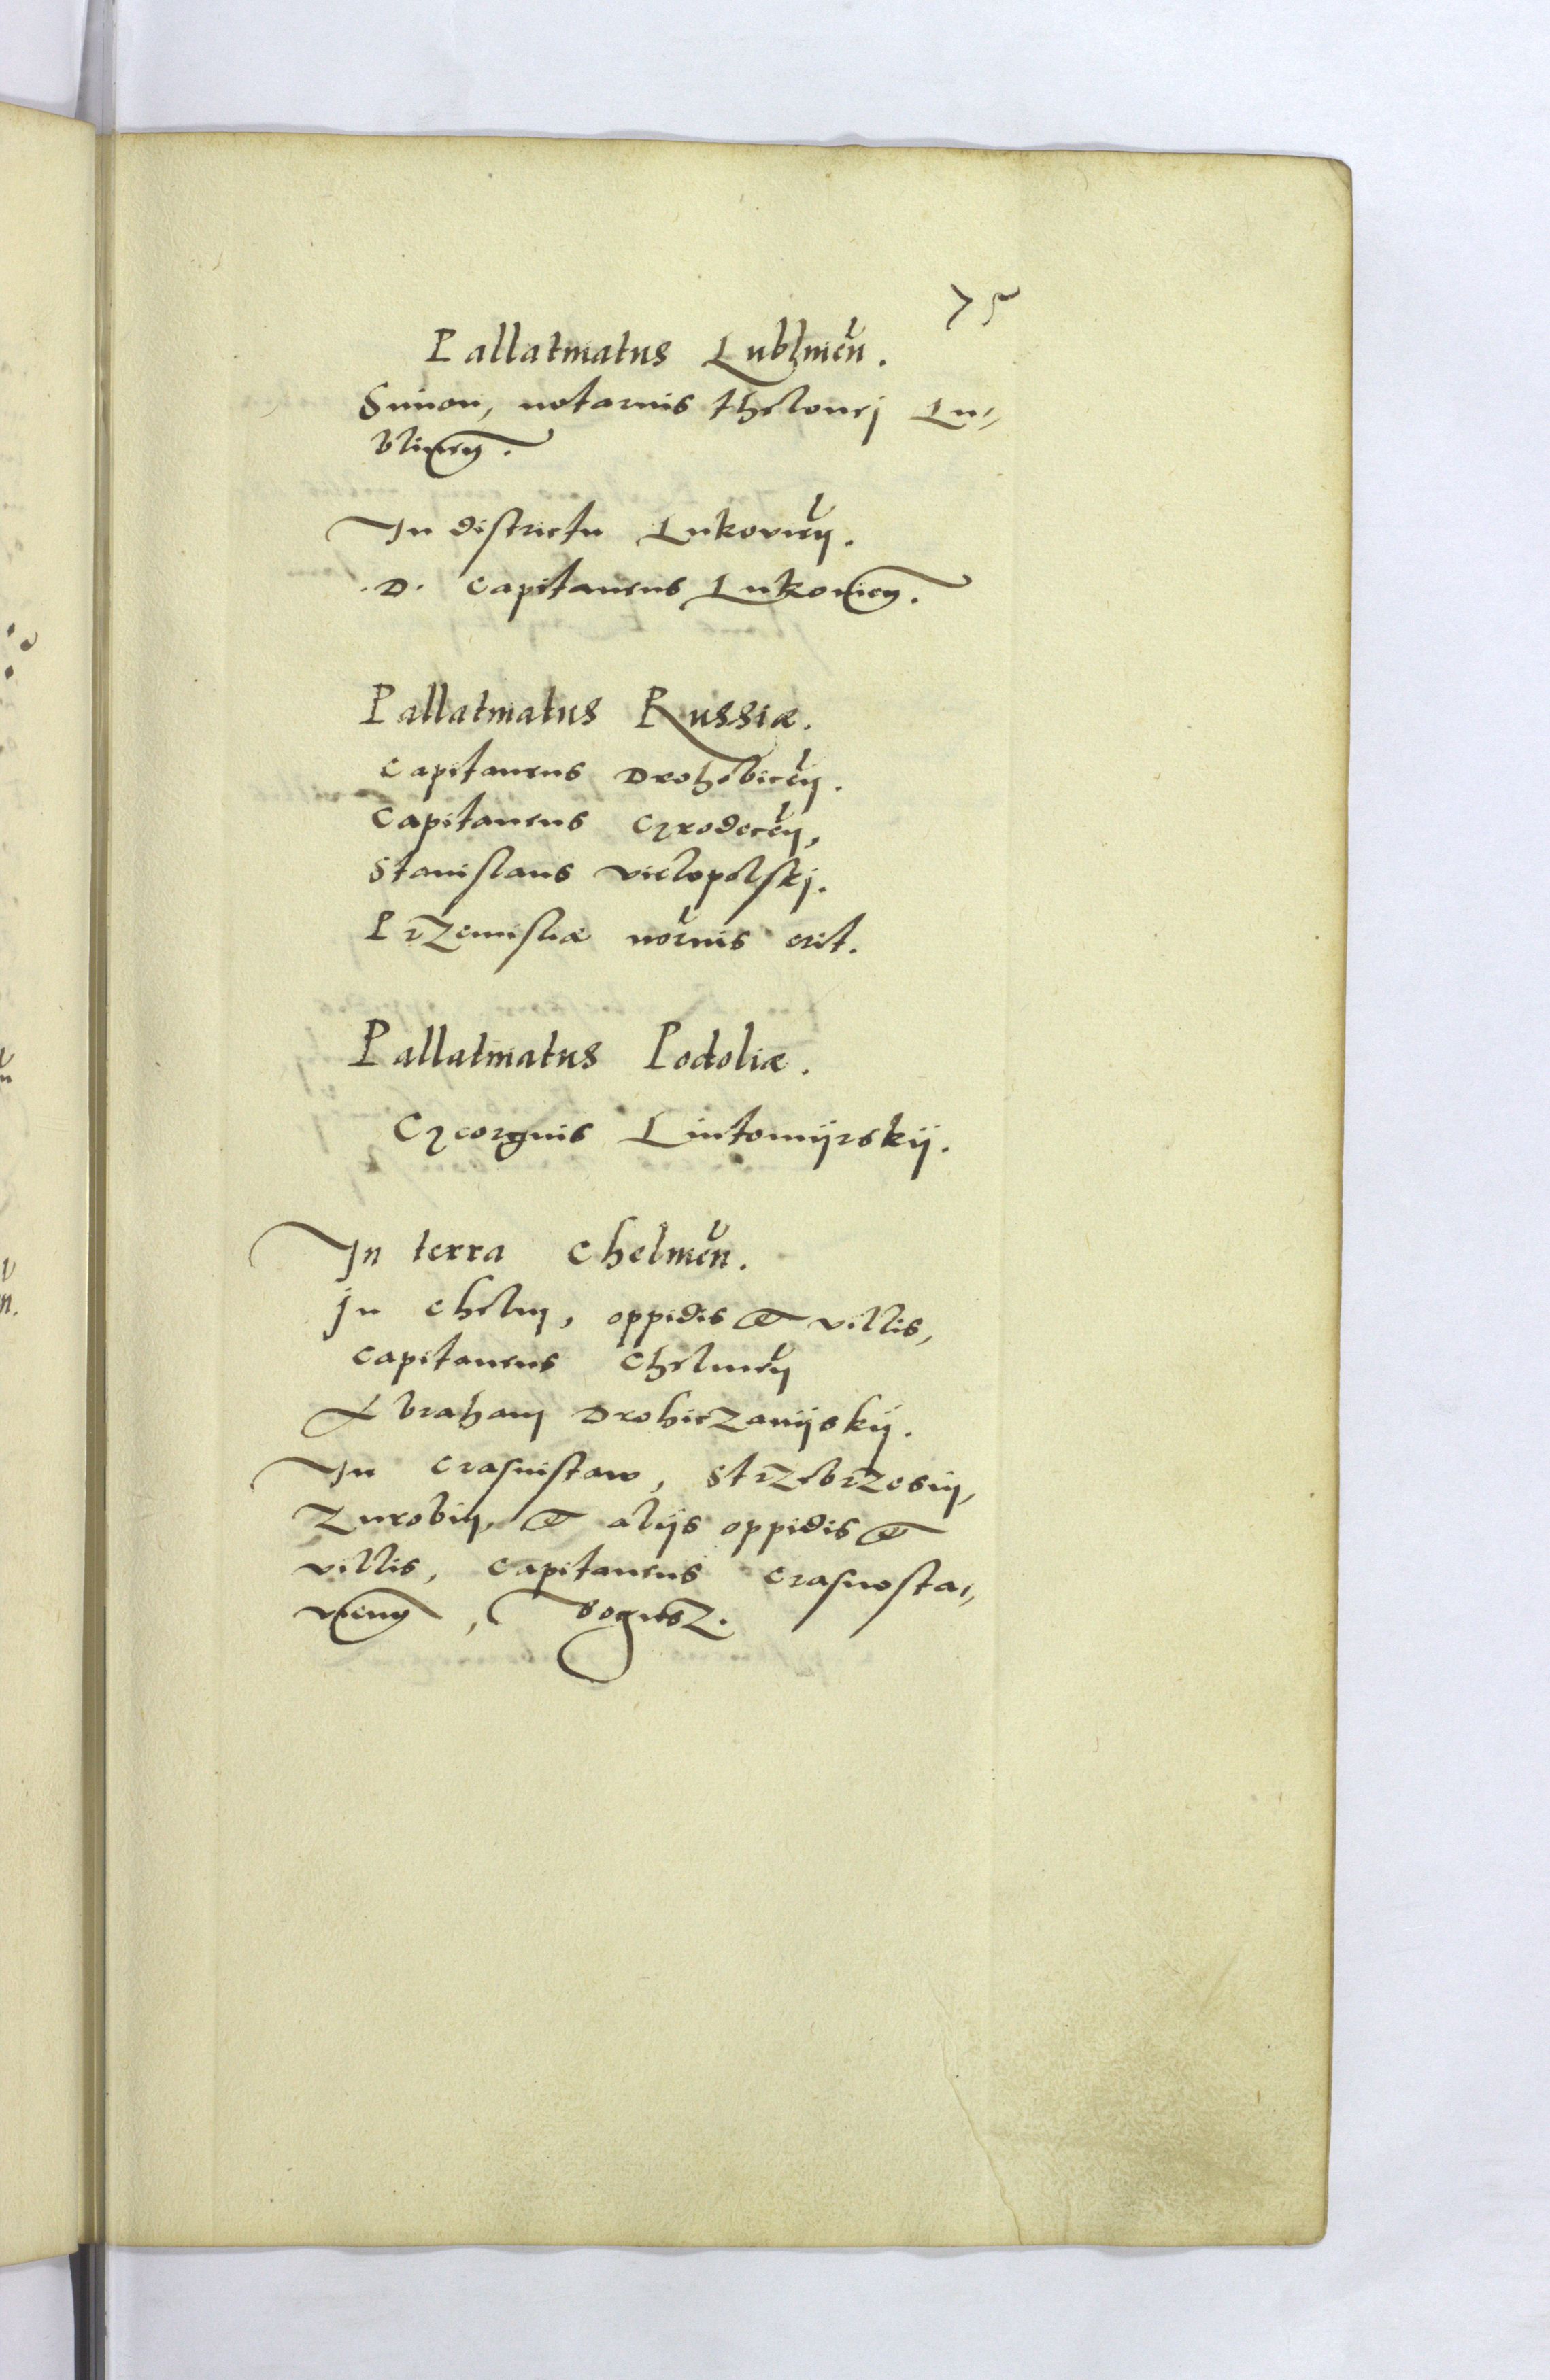 75
Pallatinatus Lublinen̄.
Simon, notarius thelonej Lu-
blinen̄.
In districtu Lukovien̄.
.D. Capitaneus Lukovien̄.
Pallatinatus Russiæ.
Capitaneus Drohobicen̄.
Capitaneus Grodecen̄,
Stanislaus Vielopolskj.
Przemisliæ no͞rius erit.
Pallatinatus Podoliæ.
Georgius Lintomijrskij.
In terra Chelmen̄.
In Chelm, oppidis et villis,
Capitaneus Chelmen̄
Abraham Drohiczanijskij.
In Crasnistaw, Strzebrzesin,
Turobin, et alijs oppidis et
villis, Capitaneus Crasnosta-
vien̄, Bogusz.